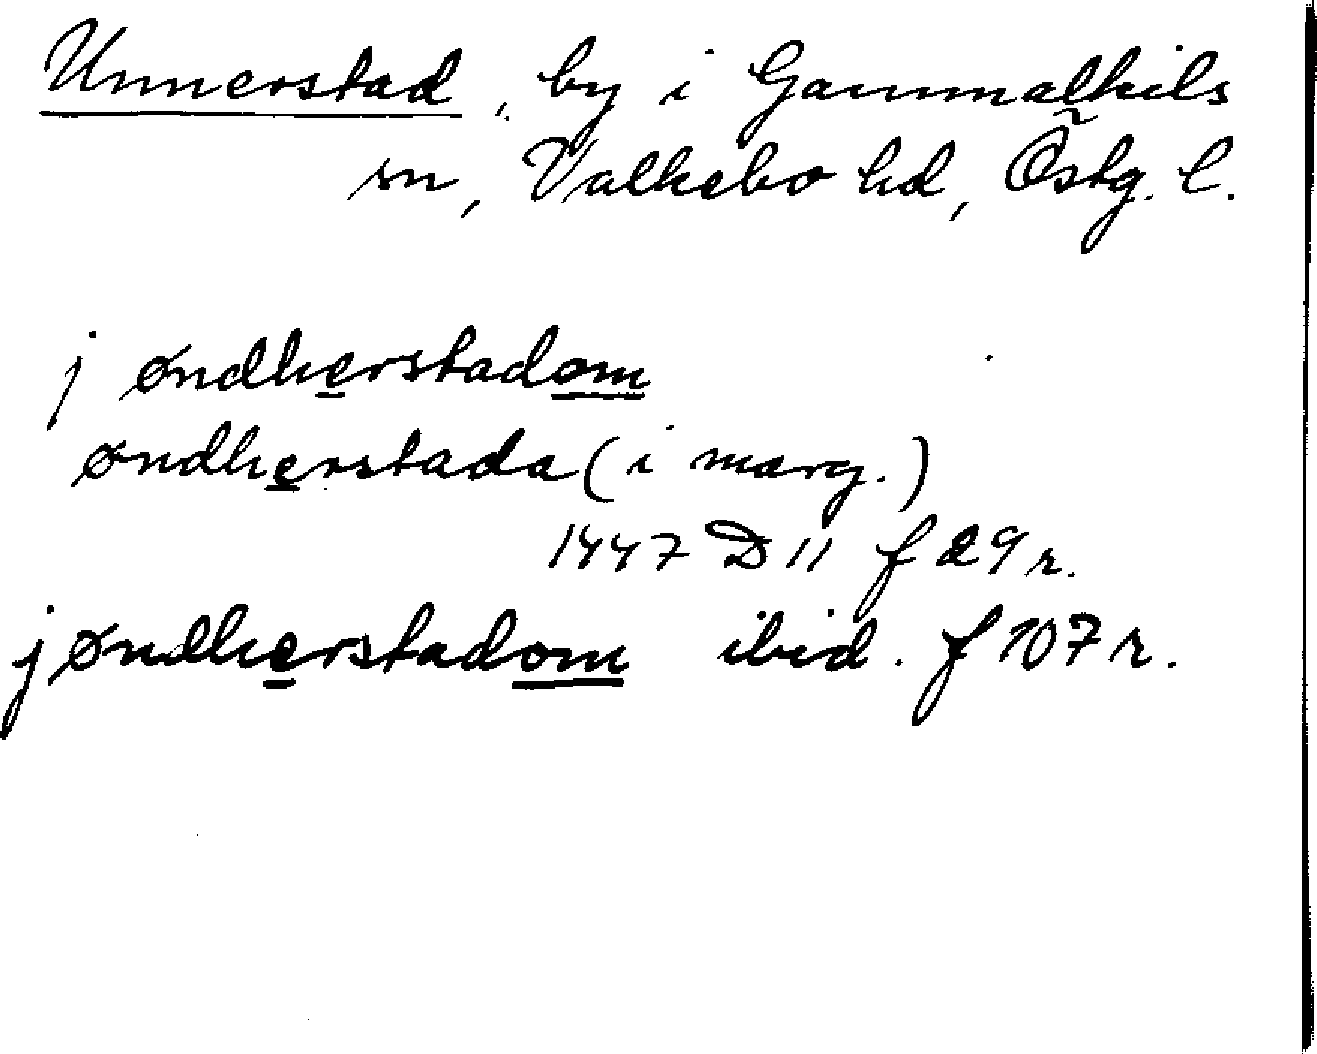 Unnerstad, by i Gammalkils
sn, Valkebo hd, Östg. l.
j øndherstadom
øndherstada (i marg.)
1447 D 11 f 29 r.
j øndherstadom ibid. f 107 r.